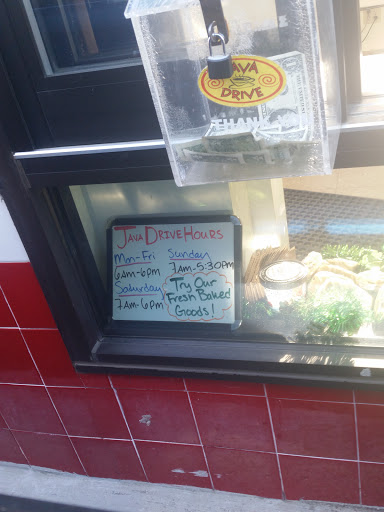 JAVA
DRIVE
THANK
JAVA DRIVE HOURS
Mon-Fri
6am-6pm
Saturday
7am-6pm
Sunday
7am-5:30pm
Try Our
Fresh Baked
Goods!